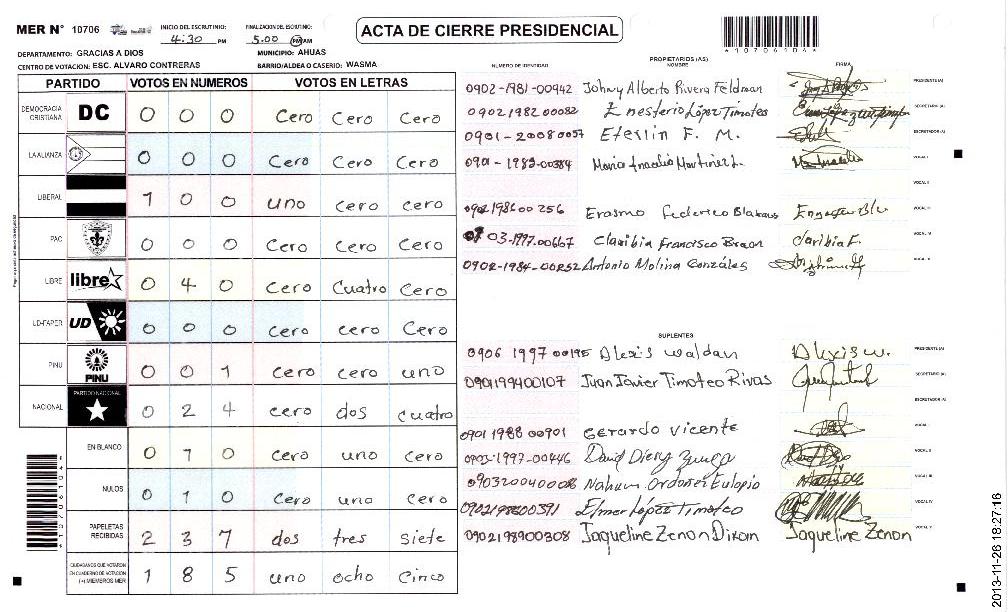 MER N° 10706
INICIO DEL ESCRUTINIO:
4:30 PM
FINALIZACION DEL ESCRUTINIO:
5.00 PM AM
ACTA DE CIERRE PRESIDENCIAL
*10706104*
DEPARTAMENTO: GRACIAS A DIOS
MUNICIPIO: AHUAS
CENTRO DE VOTACION: ESC. ALVARO CONTRERAS
BARRIO/ALDEA O CASERIO: WASMA
PARTIDO VOTOS EN NUMEROS VOTOS EN LETRAS
DEMOCRACIA CRISTIANA DC 0 0 0 Cero Cero Cero
LA ALIANZA 0 0 0 Cero Cero Cero
LIBERAL 1 0 0 uno cero cero
PAC 0 0 0 Cero Cero Cero
LIBRE libre 0 4 0 Cero Cuatro Cero
UD-FAPER UD 0 0 0 Cero cero Cero
PINU PINU 0 0 1 cero cero uno
NACIONAL PARTIDO NACIONAL 0 2 4 cero dos cuatro
EN BLANCO 0 1 0 cero uno cero
NULOS 0 1 0 cero uno cero
PAPELETAS RECIBIDAS 2 3 7 dos tres siete
CIUDADANOS QUE VOTARON EN CUADERNO DE VOTACION (+) MIEMBROS MER 1 8 5 uno ocho cinco
PROPIETARIOS (AS)
NUMERO DE IDENTIDAD NOMBRE FIRMA
0902-1981-00942 Johny Alberto Rivera Feldman PRESIDENTE(A)
0902 1982 00082 Enesterio López Timoteo SECRETARIO(A)
0901-2008 0057 Eterlin F. M. ESCRUTADOR(A)
0901-1983-00384 Maria Anaelia Martinez L. VOCAL I
VOCAL II
0902 1986 00 256 Erasmo Federico VOCAL III
03-1997-00667 Claribia Francisco Claribia F. VOCAL IV
0902-1984-00252 Antonio Molina Gonzáles VOCAL V
SUPLENTES
0906 1997 00195 Alexis Waldan Alexis W. PRESIDENTE(A)
0901199400107 Juan Javier Timoteo Rivas SECRETARIO(A)
ESCRUTADOR(A)
0901 1988 00901 Gerardo Vicente VOCAL I
0903-1997-00446 David VOCAL II
090320040008 Nahum Ordoñez Eulopio VOCAL III
0902198600391 Elmer López Timoteo VOCAL IV
0902198900308 Jaqueline Zenon Dixon Jaqueline Zenon VOCAL V
*10706104*
2013-11-26 18:27:16